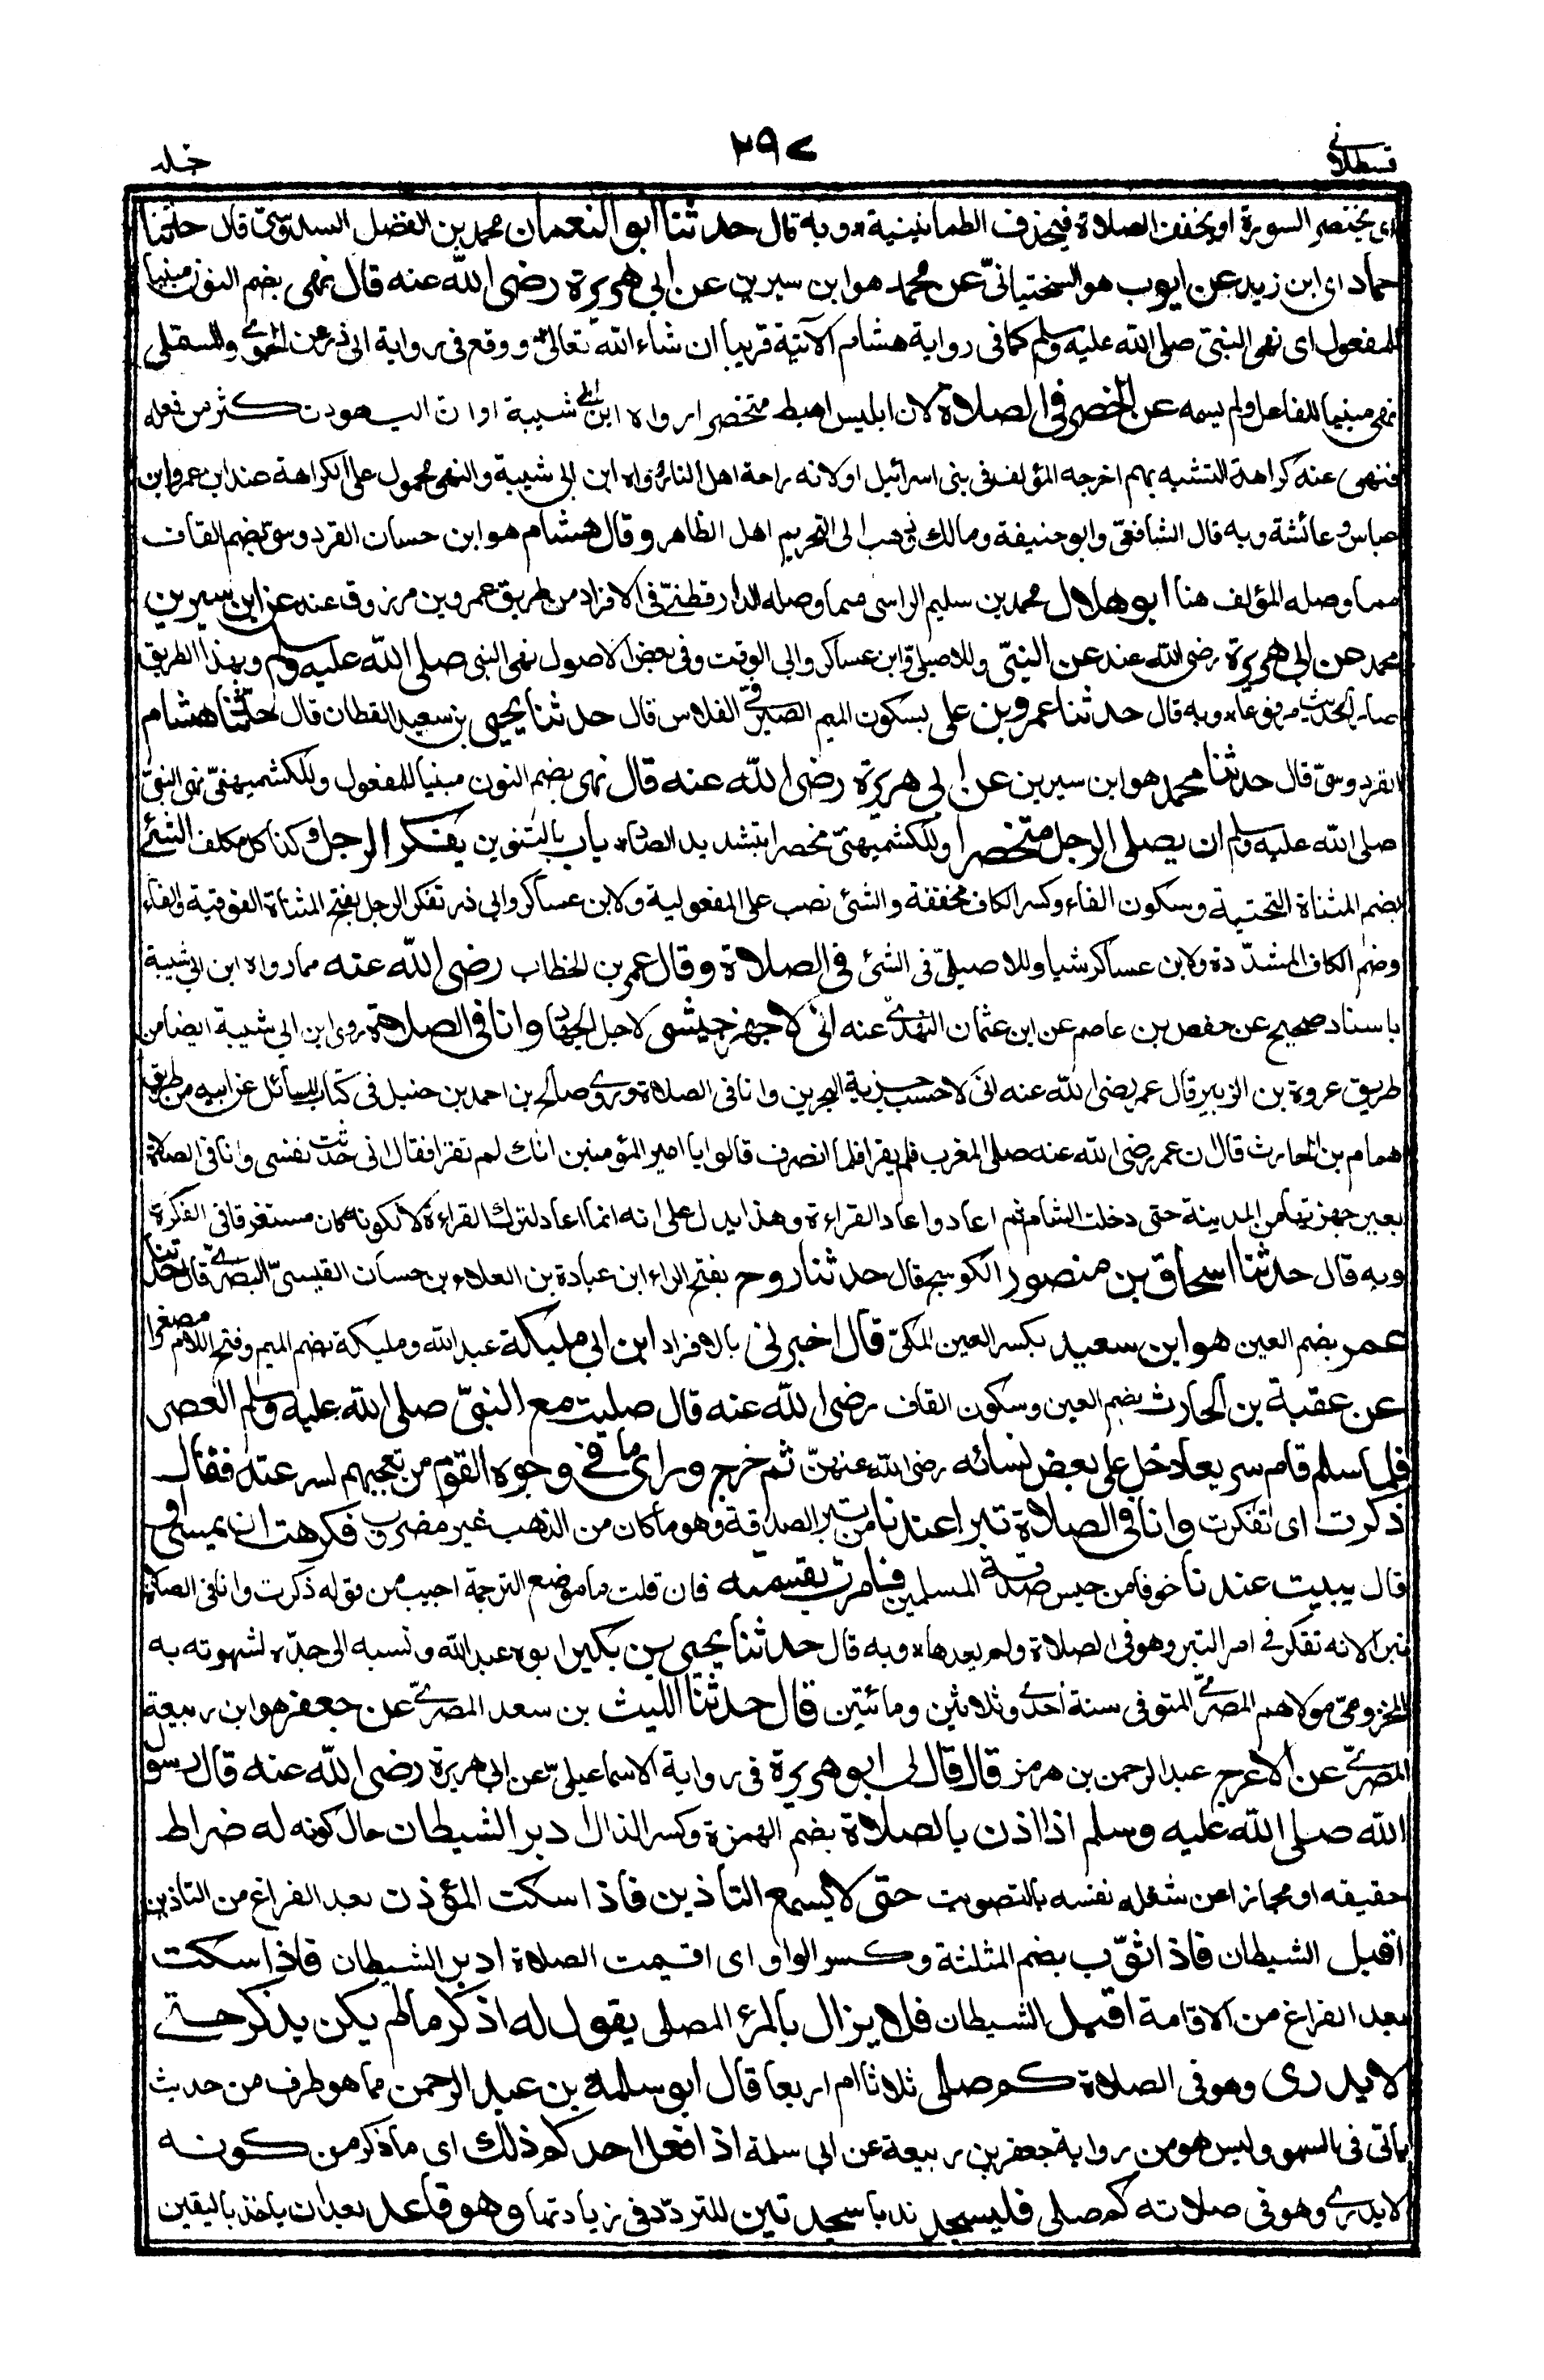 قسطلانی
۲۹۷
جلد
ای یختصر السورة او یخفف الصلاة فیحذف الطمانینیة * وبه قال حدثنا ابو النعمان محمد بن الفضل السدوسیّ قال حدثنا
حماد ای ابن زید عن ایوب هو السختیانیّ عن محمد هو ابن سیرین عن ابی هریرة رضی الله عنه قال نهی بضم النون مبنیا
للمفعول ای نهی النبیّ صلی الله علیه وسلم کما فی روایة هشام الآتیة قریبا ان شاء الله تعالی ووقع فی روایة ابی ذر عن الحموی والمستملی
نهی مبنیا للفاعل ولم یسمه عن الخصر فی الصلاة لان ابلیس اهبط متخصرا رواه ابن ابی شیبة او ان الیهود تکثر من فعله
فنهی عنه کراهة التشبه بهم اخرجه المؤلف فی بنی اسرائیل او لانه راحة اهل النار رواه ابن ابی شیبة والنهی محمول علی الکراهة عند ابن عمر وابن
عباس وعائشة وبه قال الشافعیّ وابو حنیفة ومالک وذهب الی التحریم اهل الظاهر وقال هشام هو ابن حسان القردوسیّ بضم القاف
مما وصله المؤلف هنا ابو هلال محمد بن سلیم الراسی مما وصله الدارقطنیّ فی الافراد من طریق عمرو بن مرزوق عنه عن ابن سیرین
محمد عن ابی هریرة رضی الله عنه عن النبیّ وللاصیلیّ وابن عساکر وابی الوقت وفی بعض الاصول نهی النبی صلی الله علیه وسلم وبهذا الطریق
صار الحدیث مرفوعا * وبه قال حدثنا عمرو بن علی بسکون المیم الصیرفیّ الفلاس قال حدثنا یحیی بن سعید القطان قال حدّثنا هشام
القردوسیّ قال حدثنا محمد هو ابن سیرین عن ابی هریرة رضی الله عنه قال نهی بضم النون مبنیا للمفعول وللکشمیهنیّ نهی النبیّ
صلی الله علیه وسلم ان یصلی الرجل متخصرا وللکشمیهنیّ مخصرا بتشدید الصاد * باب بالتنوین یفکر الرجل وکذا کل مکلف الشئ
بضم المثناة التحتیة وسکون الفاء وکسر الکاف مخففة والشئ نصب علی المفعولیة ولابن عساکر وابی ذر تفکر الرجل بفتح المثناة الفوقیة والفاء
وضم الکاف المشدّدة ولابن عساکر شیا وللاصیلیّ فی الشئ فی الصلاة وقال عمر بن الخطاب رضی الله عنه مما رواه ابن ابی شیبة
باسناد صحیح عن حفص بن عاصم عن ابن عثمان النهدیّ عنه انی لاجهز جیشی لاجل الجهاد وانا فی الصلاة روی ابن ابی شیبة ایضا من
طریق عروة بن الزبیر قال عمر رضی الله عنه انی لاحسب جزیة البحرین وانا فی الصلاة وروی صالح بن احمد بن حنبل فی کتاب المسائل عن ابیه من طریق
همام بن الحارث قال ان عمر رضی الله عنه صلی المغرب فلم یقرا فلما انصرف قالوا یا امیر المؤمنین انک لم تقرا فقال انی حدثت نفسی وانا فی الصلاة
بعیر جهزتها من المدینة حتی دخلت الشام ثم اعاد واعاد القراءة وهذا یدل علی انه انما اعاد لترک القراءة لا لکونه کان مستغرقا فی الفکرة
وبه قال حدثنا اسحاق بن منصور الکوسج قال حدثنا روح بفتح الراء ابن عبادة بن العلاء بن حسان القیسیّ البصریّ قال حدثنا
عمر بضم العین هو ابن سعید بکسر العین المکیّ قال اخبرنی بالافراد ابن ابی ملیکة عبد الله وملیکة بضم المیم وفتح اللام مصغرا
عن عقبة بن الحارث بضم العین وسکون القاف رضی الله عنه قال صلیت مع النبیّ صلی الله علیه وسلم العصر
فلما سلم قام سریعا دخل علی بعض نسائه رضی الله عنهنّ ثم خرج ورای ما فی وجوه القوم من تعجبهم لسرعته فقال
ذکرت ای تفکرت وانا فی الصلاة تبرا عندنا من تبر الصدقة وهو ما کان من الذهب غیر مضروب فکرهت ان یمسی او
قال یبیت عندنا خوفا من حبس صدقة المسلمین فامرت بقسمته فان قلت ما موضع الترجمة اجیب من قوله ذکرت وانا فی الصلاة
تبرا لانه تفکر فی امر التبر وهو فی الصلاة ولم یعدها * وبه قال حدثنا یحیی بن بکیر ابوه عبد الله ونسبه الی جدّه لشهرته به
المخزومیّ مولاهم المصریّ المتوفی سنة احدی وثلاثین ومائتین قال حدثنا اللیث بن سعد المصریّ عن جعفر هو ابن ربیعة
المصریّ عن الاعرج عبد الرحمن بن هرمز قال قال لی ابو هریرة فی روایة الاسماعیلیّ عن ابی هریرة رضی الله عنه قال رسول
الله صلی الله علیه وسلم اذا اذن بالصلاة بضم الهمزة وکسر الذال ادبر الشیطان حال کونه له ضراط
حقیقه او مجازا عن شغله نفسه بالتصویت حتی لا یسمع التاذین فاذا سکت المؤذن بعد الفراغ من التاذین
اقبل الشیطان فاذا ثوّب بضم المثلثة وکسر الواو ای اقیمت الصلاة ادبر الشیطان فاذا سکت
بعد الفراغ من الاقامة اقبل الشیطان فلا یزال بالمرء المصلی یقول له اذکر ما لم یکن یذکر حتی
لا یدری وهو فی الصلاة کم صلی ثلاثا ام اربعا قال ابو سلمة بن عبد الرحمن مما هو طرف من حدیث
یأتی فی السهو ولیس هو من روایة جعفر بن ربیعة عن ابی سلمة اذا فعل احدکم ذلک ای ما ذکر من کونه
لا یدری وهو فی صلاته کم صلی فلیسجد ندبا سجدتین للتردّد فی زیادتها وهو قاعد بعد ان یاخذ بالیقین